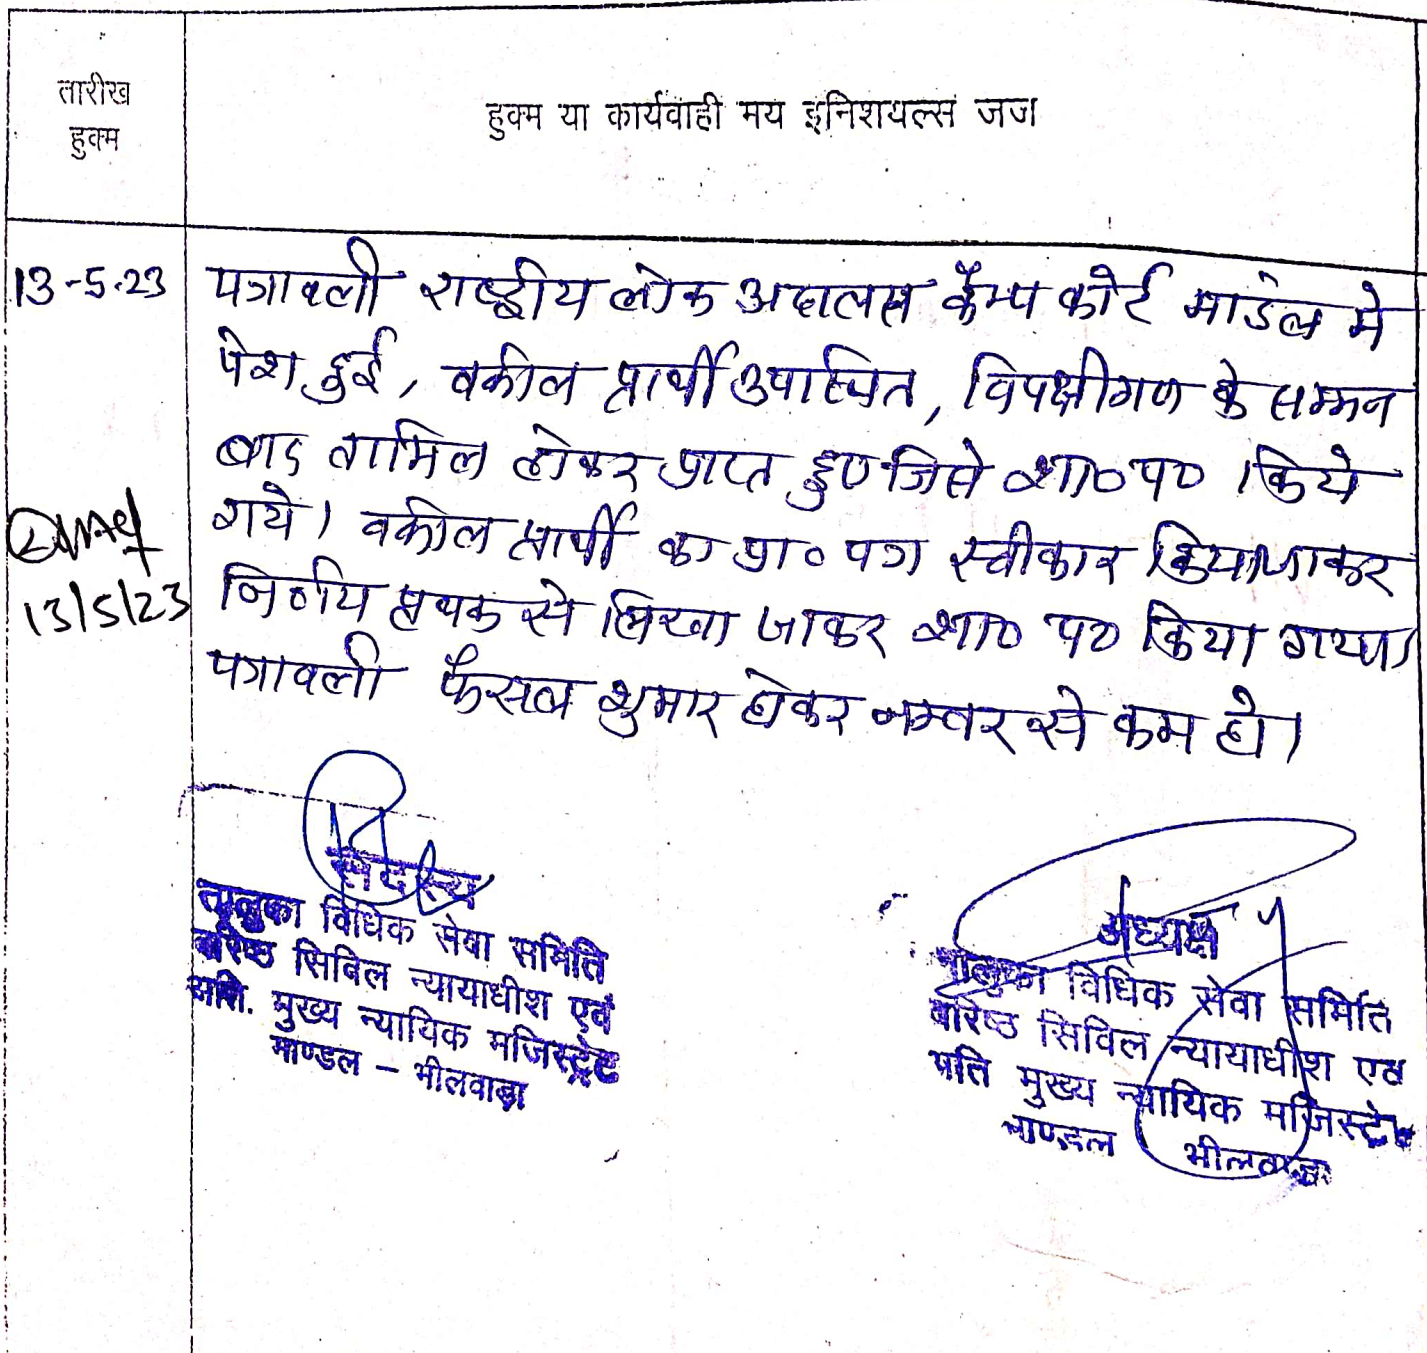 तारीख
हुक्म
हुक्म या कार्यवाही मय इनिशयल्स जज
13-5-23
पत्रावली राष्ट्रीय लोक अदालत कैम्प कोर्ट माडल मे
पेश हुई, वकील प्रार्थी उपस्थित, विपक्षीगण के सम्मन
बाद तामिल होकर प्राप्त हुए जिसे शा०प० किये
गये। वकील प्रार्थी का प्रा० पत्र स्वीकार किया जाकर
निर्णय प्रथक से लिखा जाकर शा० प० किया गया।
पत्रावली फैसल शुमार होकर नम्बर से कम हो।
13/5/23
सदस्य
तालुका विधिक सेवा समिति
वरिष्ठ सिविल न्यायाधीश एवं
अति. मुख्य न्यायिक मजिस्ट्रेट
माण्डल - भीलवाड़ा
अध्यक्ष
तालुका विधिक सेवा समिति
वरिष्ठ सिविल न्यायाधीश एवं
अति मुख्य न्यायिक मजिस्ट्रेट
माण्डल भीलवाड़ा